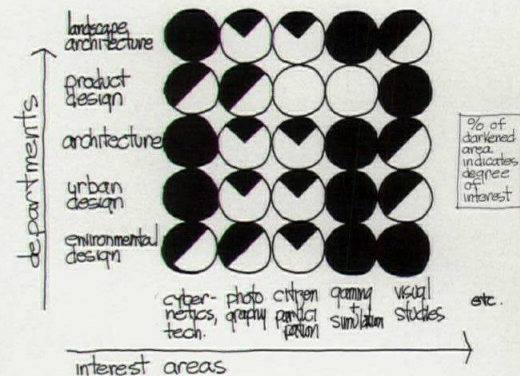 landscape
architecture
product
design
architecture
urban
design
environmental
design
departments
% of
darkened
area
indicates
degree
of
interest
cyber-
netics,
tech.
photo
graphy
citizen
partici
pation
gaming
+
simulation
visual
studies
etc.
interest areas